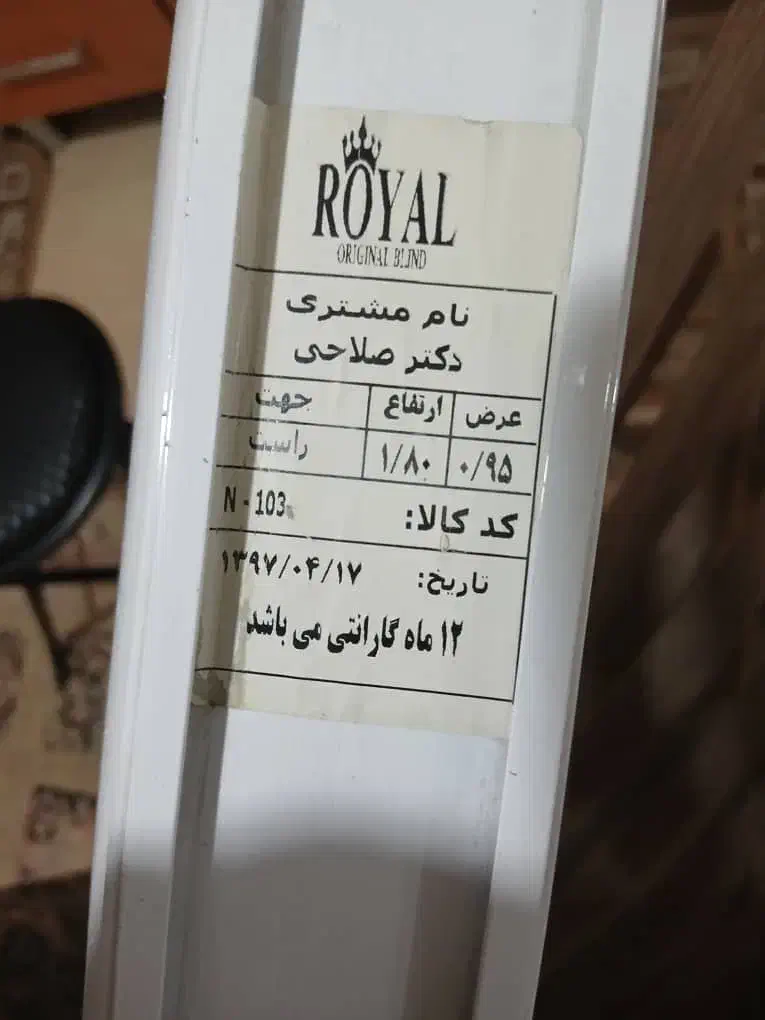 ROYAL
ORIGINAL BLIND
نام مشتری
دکتر صلاحی
عرض ارتفاع جهت
۰/۹۵ ۱/۸۰ راست
کد کالا: N - 103
تاریخ: ۱۳۹۷/۰۴/۱۷
۱۲ ماه گارانتی می باشد